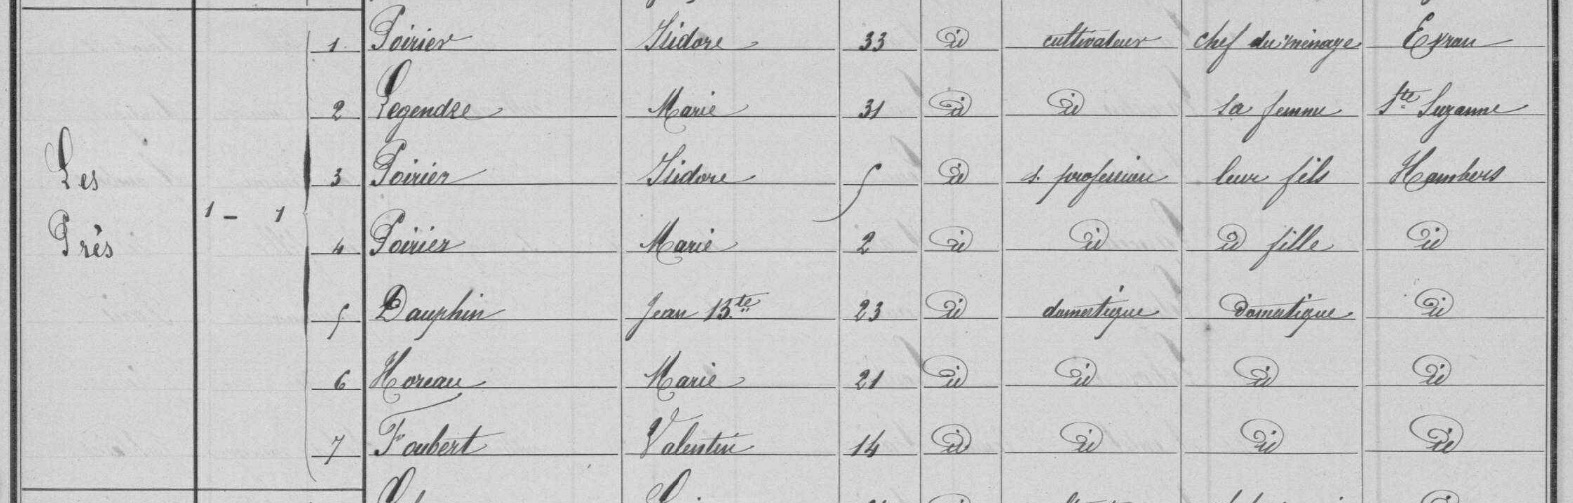 1 Poirier Isidore 33 id cultivateur chef du ménage Evron
2 Legendre Marie 31 id id sa femme Ste Suzanne
Les 3 Poirier Isidore 5 id s. profession leur fils Hambers
1 - 1
Prés 4 Poirier Marie 2 id id id fille id
5 Dauphin Jean Bte 23 id domestique domestique id
6 Horeau Marie 21 id id id id
7 Foubert Valentin 14 id id id id